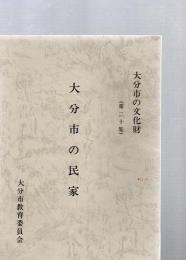 大分市の文化財
(第二十集)
大分市の民家
大分市教育委員会